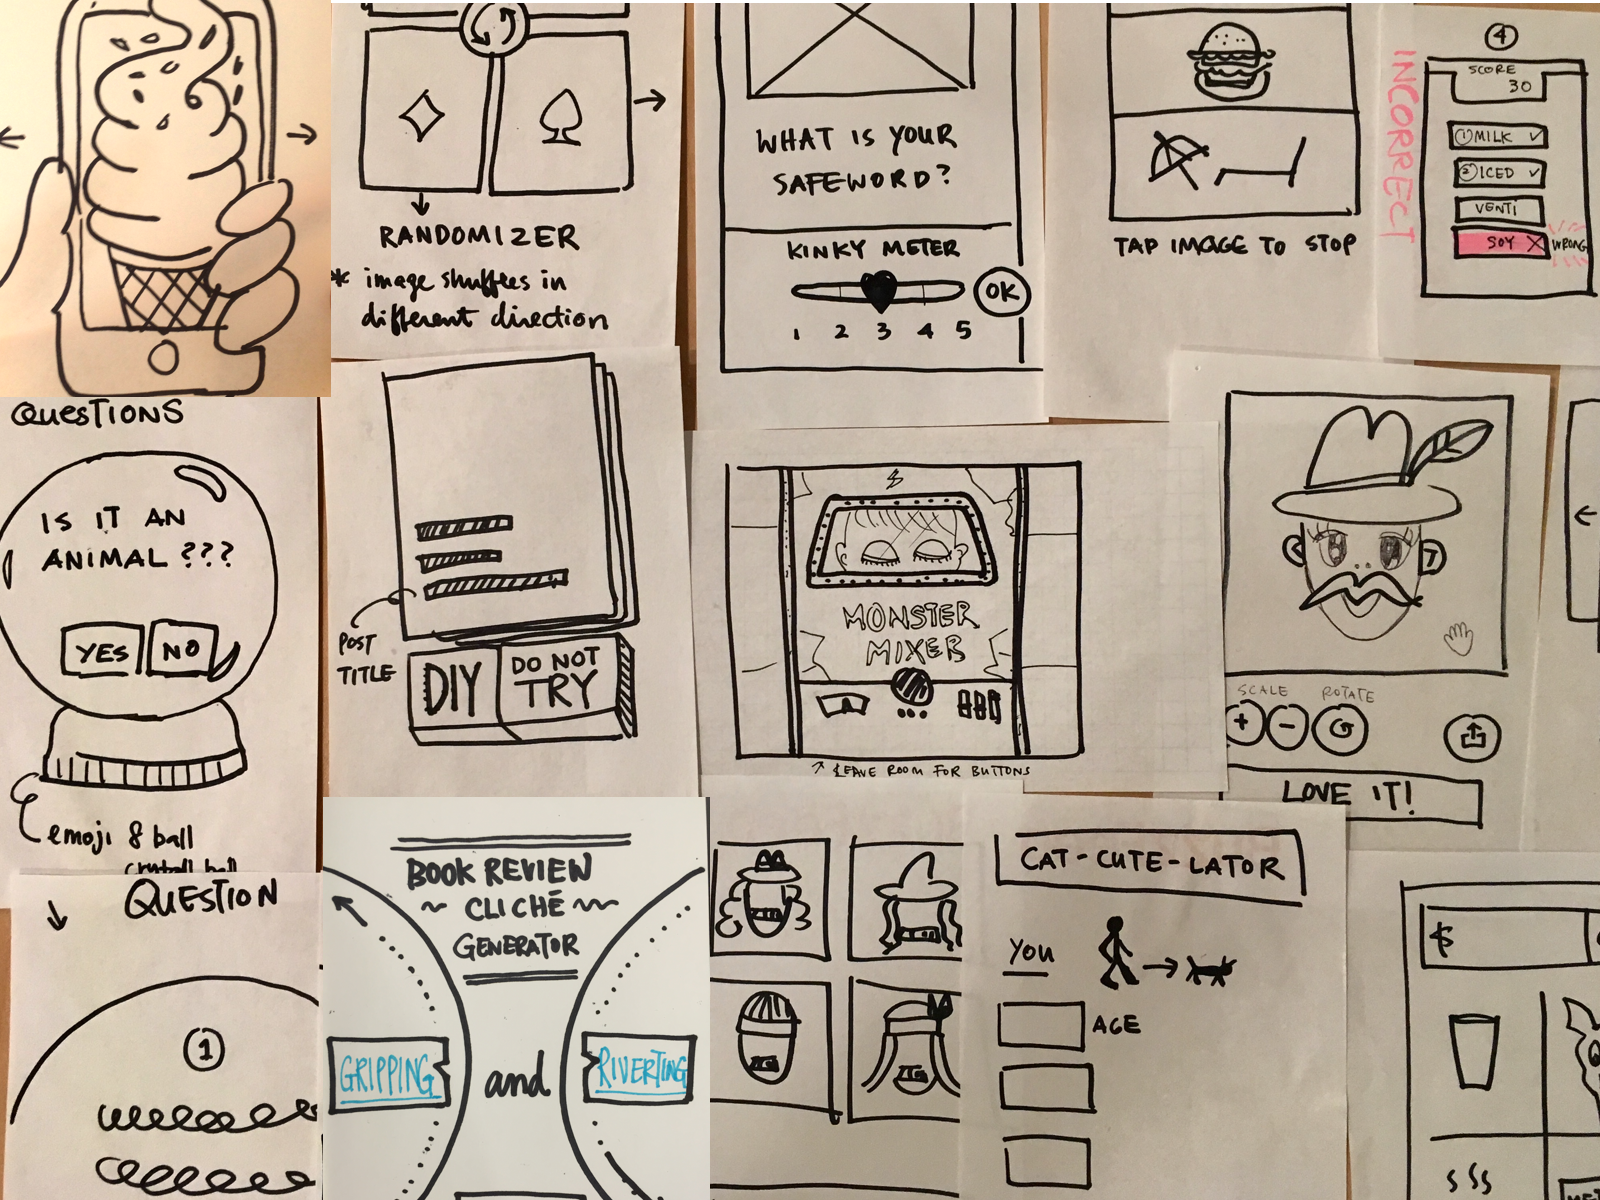 RANDOMIZER
* image shuffles in
different direction
WHAT IS YOUR
SAFEWORD?
KINKY METER
OK
1 2 3 4 5
TAP IMAGE TO STOP
INCORRECT
4
SCORE
30
1 MILK ✓
2 ICED ✓
VENTI
SOY X
WRONG
QUESTIONS
IS IT AN
ANIMAL ???
YES NO
emoji 8 ball
crystall ball
POST
TITLE
DIY
DO NOT
TRY
MONSTER
MIXER
↗ LEAVE ROOM FOR BUTTONS
SCALE ROTATE
+ -
LOVE IT!
QUESTION
1
BOOK REVIEW
~ CLICHÉ ~
GENERATOR
GRIPPING and RIVERTING
CAT-CUTE-LATOR
YOU
AGE
$